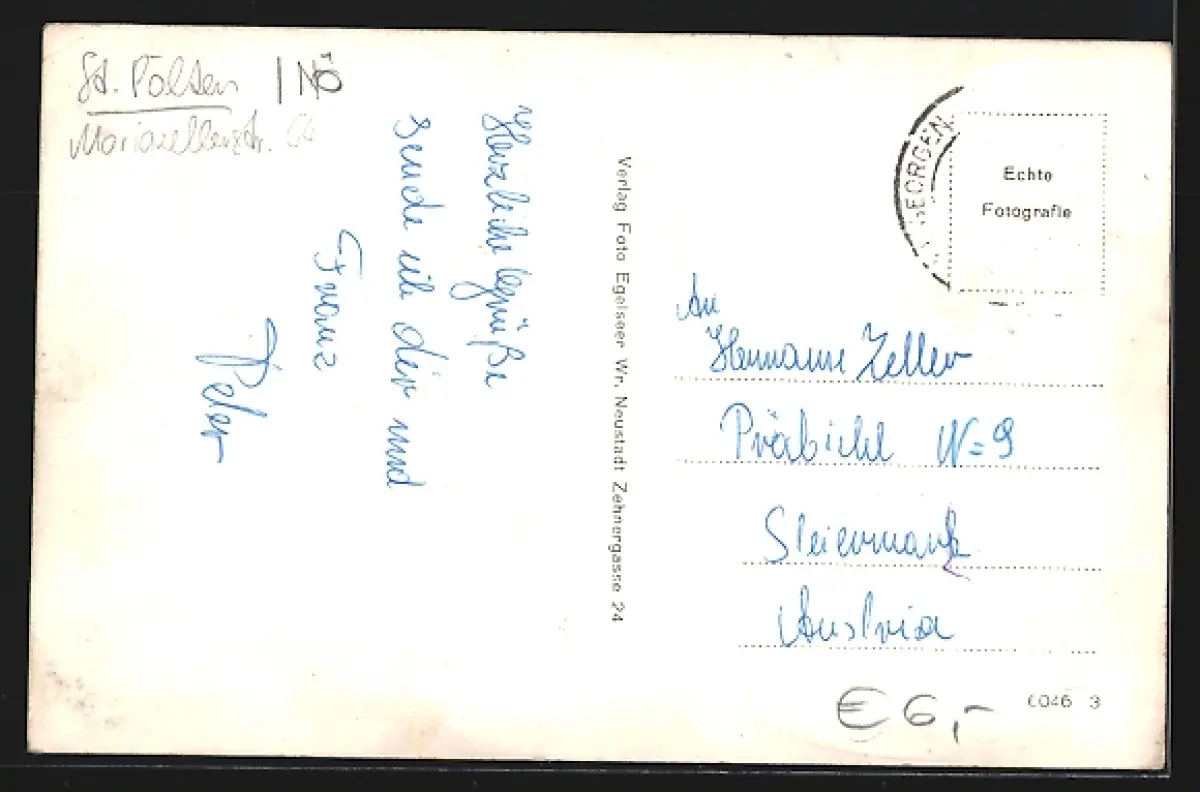 St. Pölten / NÖ
Mariazellerstr. 64
Herzliche Grüße
sende ich dir und
Franz
Peter
Verlag Foto Egelseer Wr. Neustadt Zehnergasse 24
GEORGEN
Echte
Fotografie
An
Hermann Zeller
Präbichl N=9
Steiermark
Austria
€ 6,-
6046 3